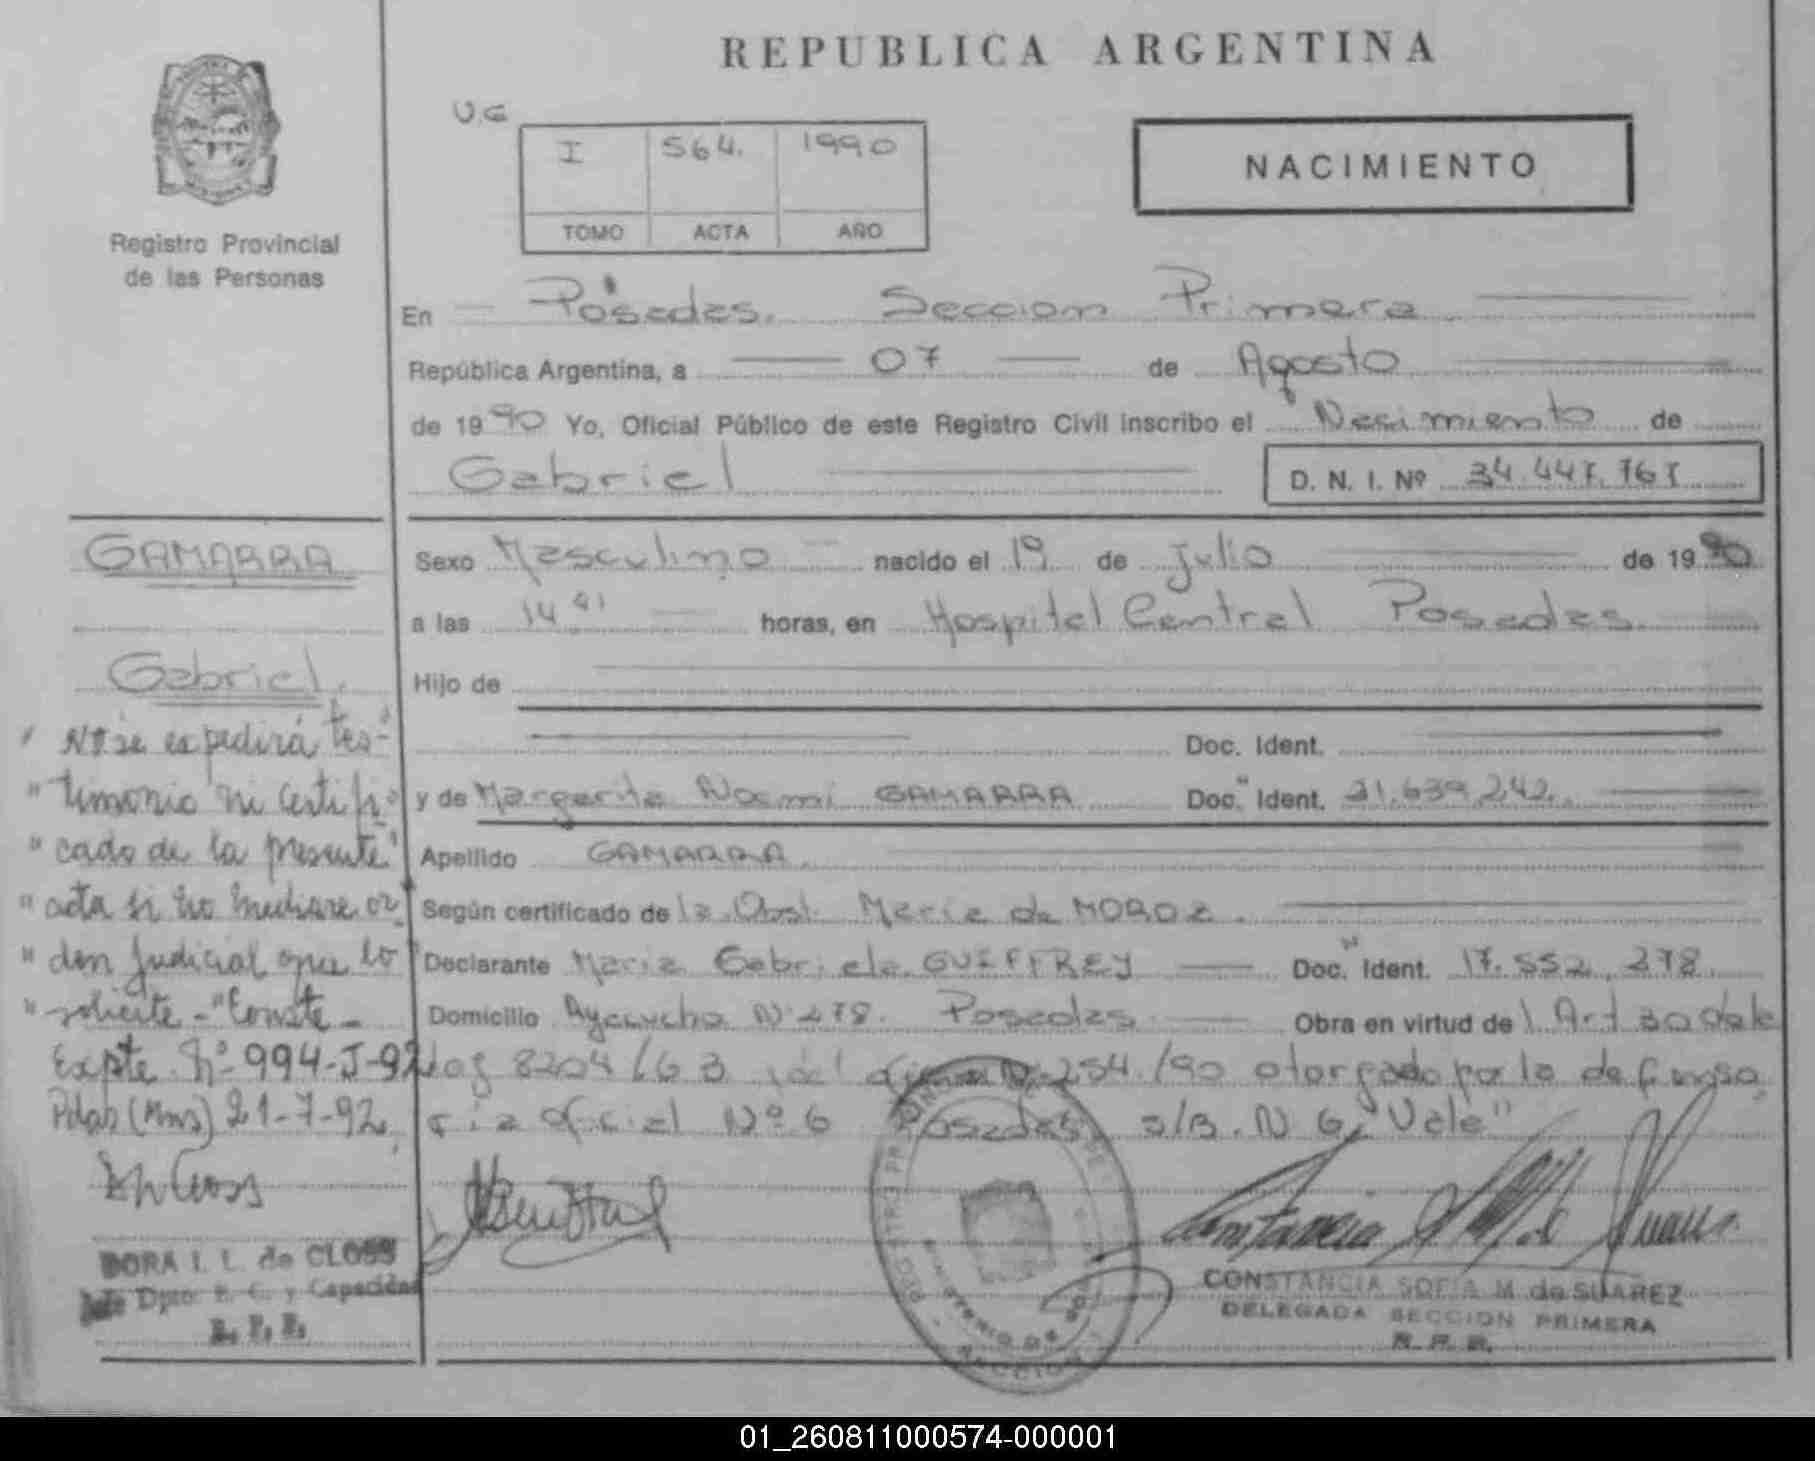 REPUBLICA ARGENTINA
Registro Provincial
de las Personas
U.C
I 564. 1990
TOMO ACTA AÑO
NACIMIENTO
En Posadas. Seccion Primera
República Argentina, a 07 de Agosto
de 1990 Yo, Oficial Público de este Registro Civil inscribo el Nacimiento de
Gabriel D. N. I. Nº 34.447.767
Sexo Masculino nacido el 19 de Julio de 1990
a las 14 horas, en Hospital Central Posadas
Hijo de
Doc. Ident.
y de Margarita Noemi GAMARRA Doc. Ident. 21.639.242.
Apellido GAMARRA
Según certificado de la Obst. Maria de MOROZ.
Declarante Maria Gabriela GUEFFREY Doc. Ident. 17.552.278.
Domicilio Ayacucho Nº 278. Posadas Obra en virtud de l Art 30 de la
ley 8204/63 254/90 otorgado por la defenso
ria oficial Nº 6 Posadas s/B. N 6, "Vale"
GAMARRA
Gabriel.
" No se expedirá tes-"
" timonio ni certifi-"
" cado de la presente"
" acta si no mediare or-
" den Judicial que lo "
" solicite -"Conste-
Expte. Nº 994-J-92
Pdas (Mns) 21-7-92
DORA I. L. de CLOSS
Jefe Dpto. E. C. y Capacidad
R. P. P.
CONSTANCIA SOFIA M. de SUAREZ
DELEGADA SECCION PRIMERA
R. P. P.
01_260811000574-000001